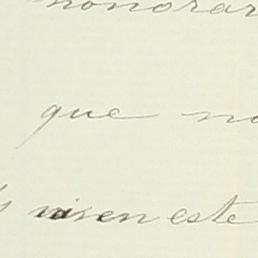 honorar
que no
en este